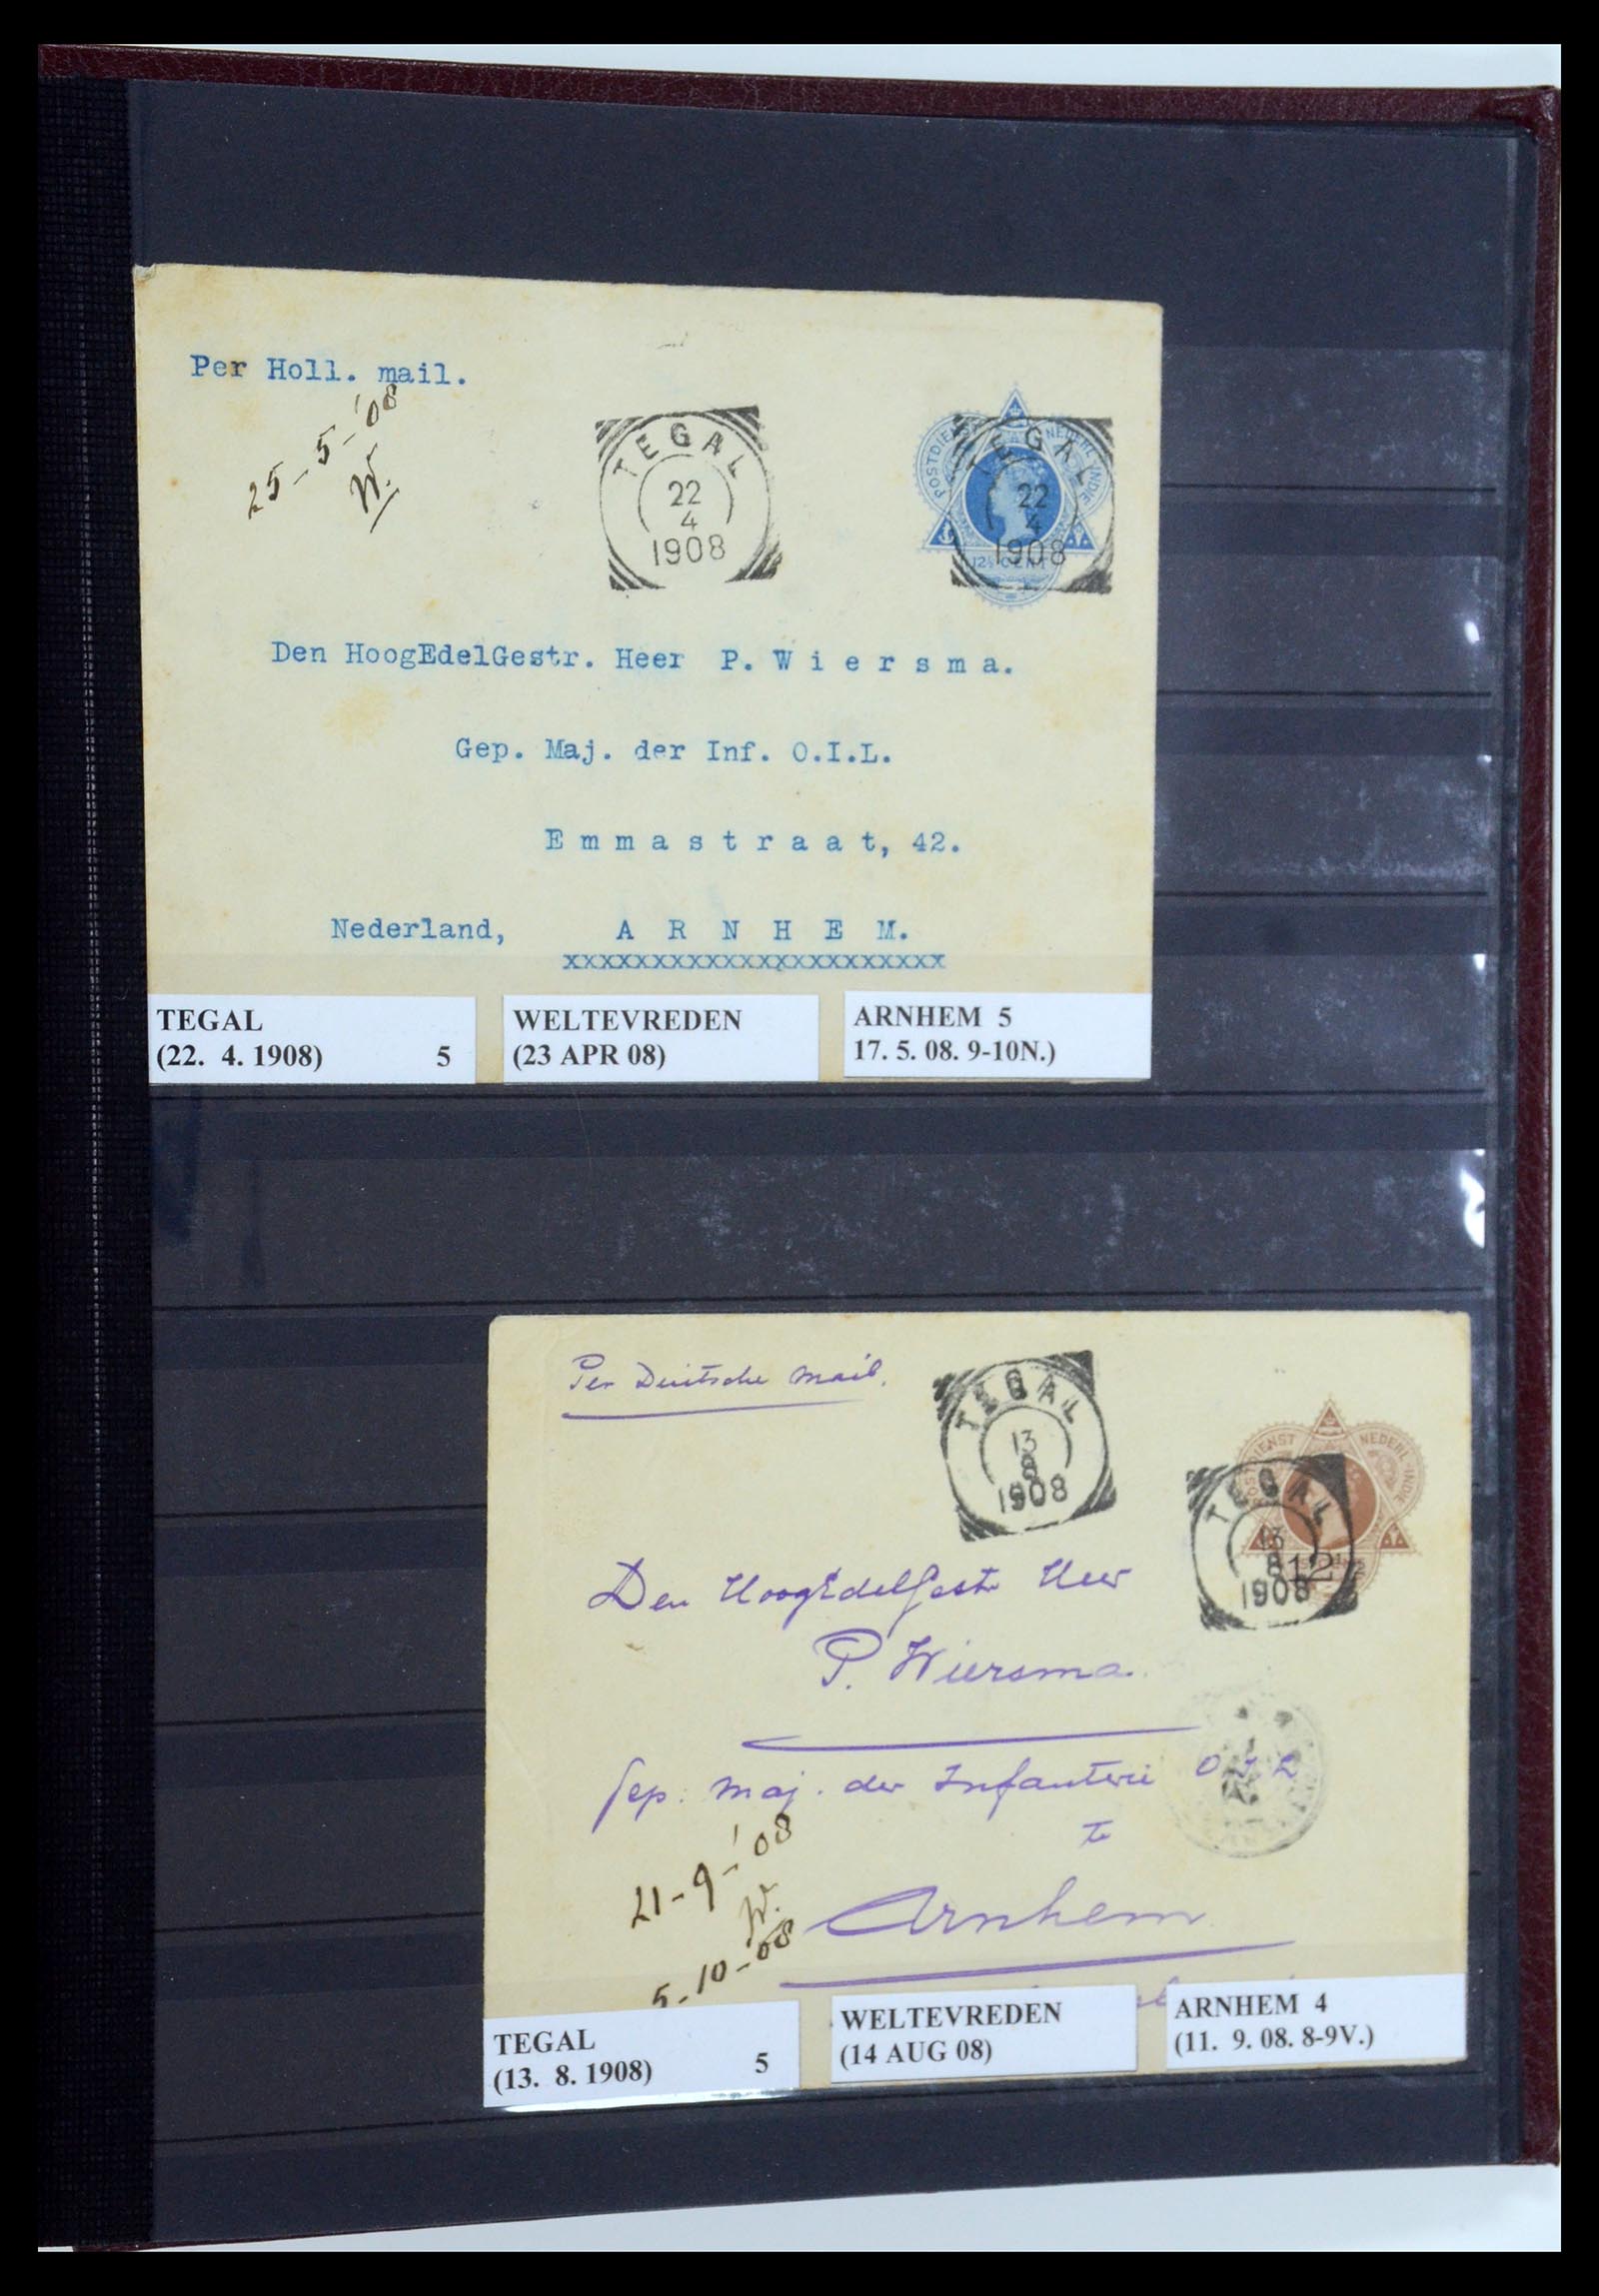 Per Holl. mail.
25-5-'08
W.
TEGAL
22
4
1908
POSTDIENST NEDERL-INDIE
TEGAL
22
4
1908
12½ CENT
Den HoogEdelGestr. Heer P. Wiersma.
Gep. Maj. der Inf. O.I.L.
Emmastraat, 42.
Nederland, ARNHEM.
xxxxxxxxxxxxxxxxxxxxx
TEGAL
(22. 4. 1908) 5
WELTEVREDEN
(23 APR 08)
ARNHEM 5
17. 5. 08. 9-10N.)
Per Duitsche Mail.
TEGAL
13
8
1908
POSTDIENST NEDERL-INDIE
TEGAL
13
8
1908
12½
Den HoogEdelGestr Heer
P. Wiersma
Gep. Maj. der Infanterie O I L
te
Arnhem
21-9-'08
W.
5-10-'08
TEGAL
(13. 8. 1908) 5
WELTEVREDEN
(14 AUG 08)
ARNHEM 4
(11. 9. 08. 8-9V.)